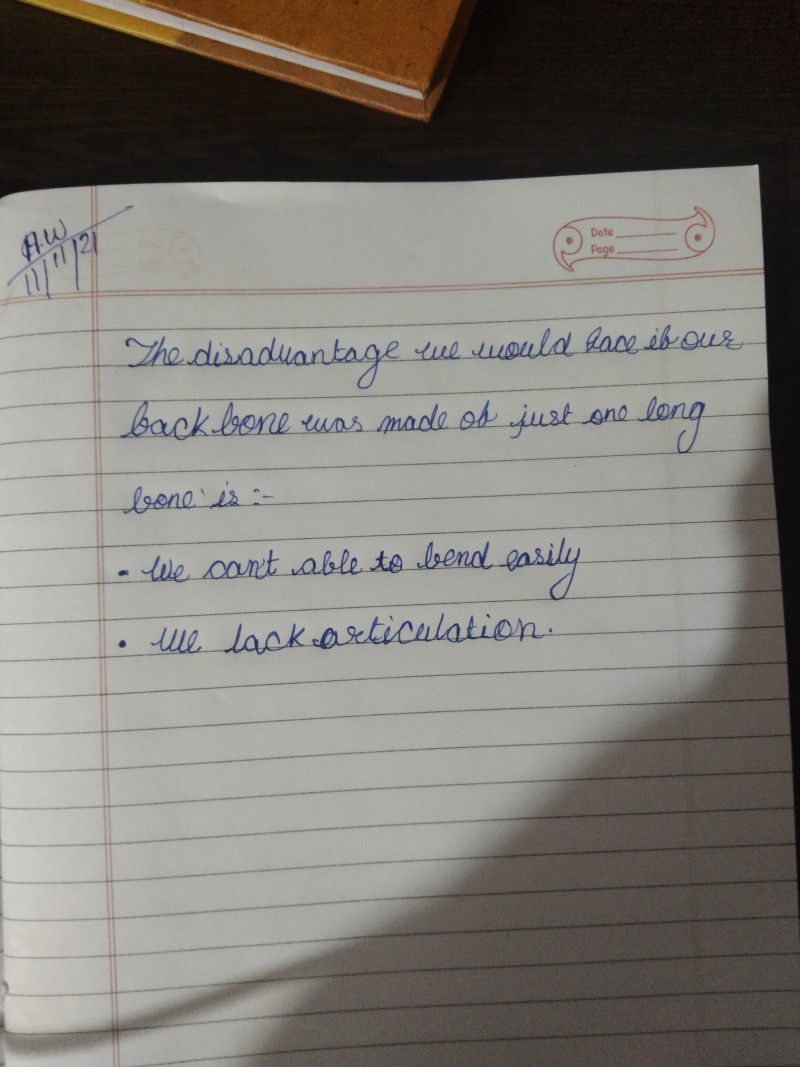 A.W
11/11/21
Date
Page
The disadvantage we would face if our
back bone was made of just one long
bone is :-
- We can't able to bend easily
• We lack articulation.